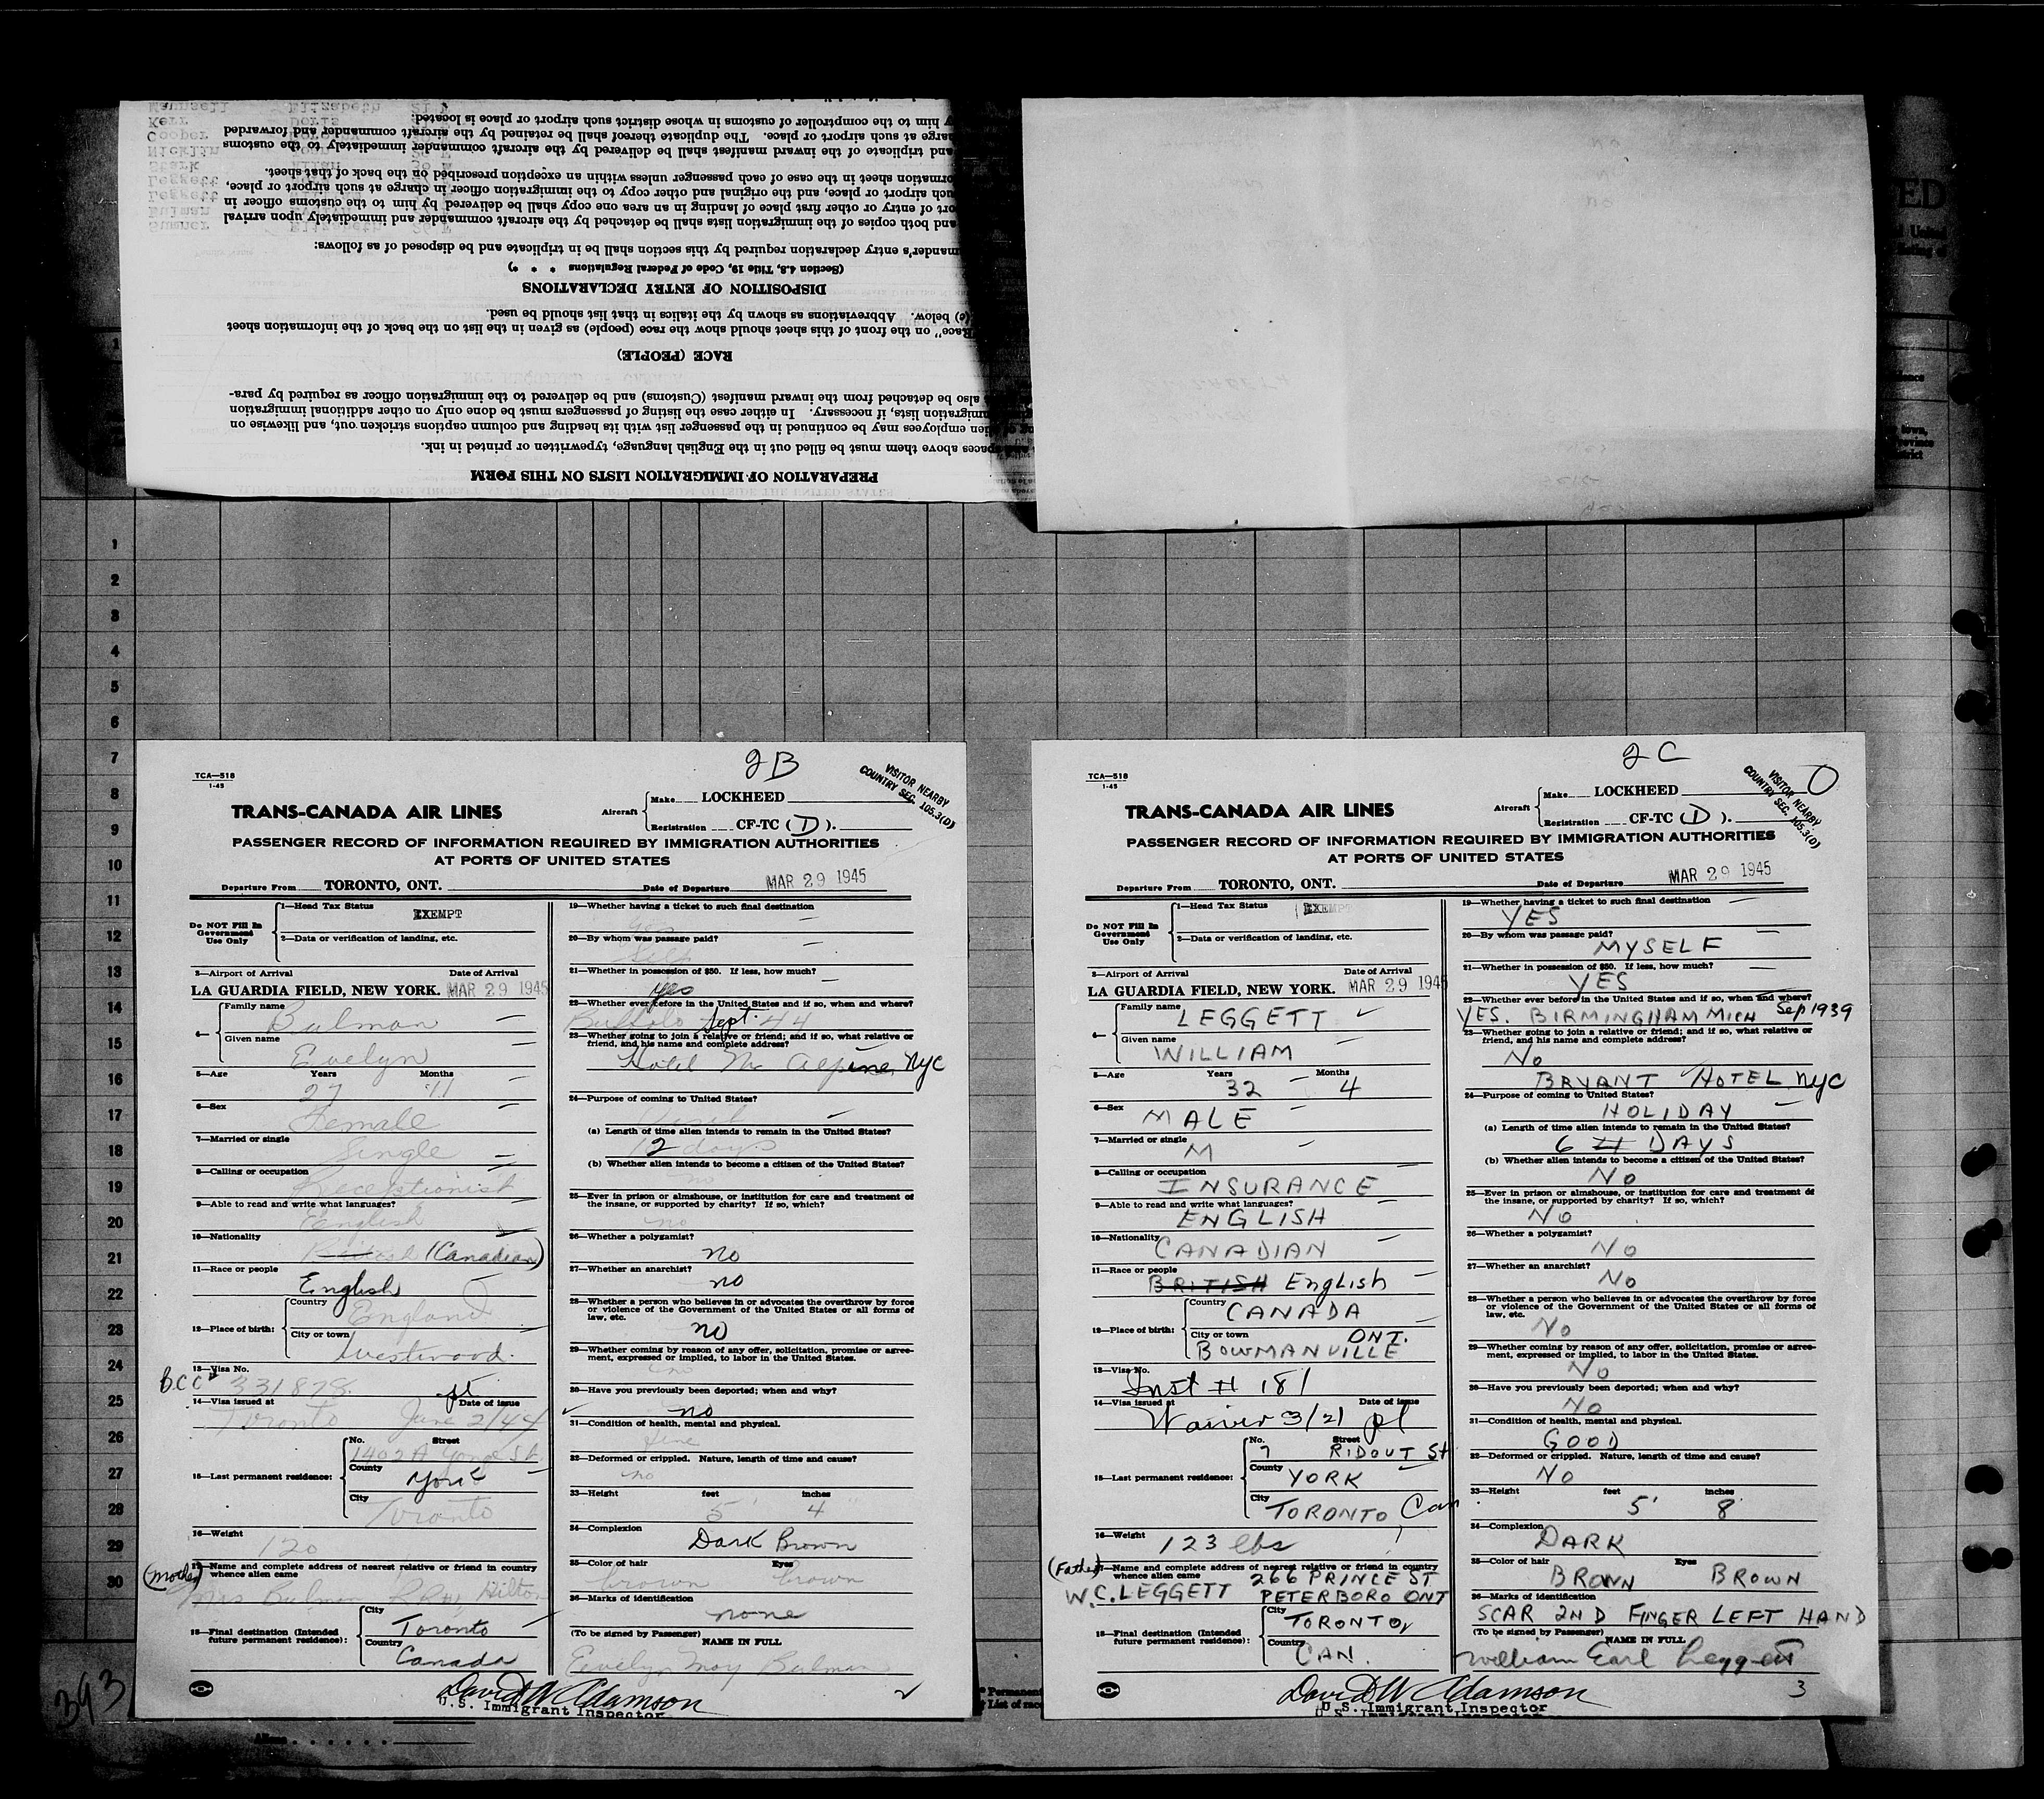 PREPARATION OF IMMIGRATION LISTS ON THIS FORM
spaces above them must be filled out in the English language, typewritten or printed in ink.
employees may be continued in the passenger list with its heading and column captions stricken out, and likewise on
immigration lists, if necessary. In either case the listing of passengers must be done only on other additional immigration
also be detached from the inward manifest (Customs) and be delivered to the immigration officer as required by para-
RACE (PEOPLE)
Race" on the front of this sheet should show the race (people) as given in the list on the back of the information sheet
(e) below. Abbreviations as shown by the italics in that list should be used.
DISPOSITION OF ENTRY DECLARATIONS
(Section 4.8, Title 19, Code of Federal Regulations * * *)
mander's entry declaration required by this section shall be in triplicate and be disposed of as follows:
and both copies of the immigration lists shall be detached by the aircraft commander and immediately upon arrival
port of entry or other first place of landing in an area one copy shall be delivered by him to the customs officer in
such airport or place, and the original and other copy to the immigration officer in charge at such airport or place,
formation sheet in the case of each passenger unless within an exception prescribed on the back of that sheet.
and triplicate of the inward manifest shall be delivered by the aircraft commander immediately to the customs
charge at such airport or place. The duplicate thereof shall be retained by the aircraft commander and forwarded
by him to the comptroller of customs in whose district such airport or place is located:
Sumner Elizabeth
Bulman
Leggett
Leggett
Stark Allan
Nicklin
Cooper
Kerr Doris
Maunsell Elizabeth 21 F
1
2
3
4
5
6
7
8
9
10
11
12
13
14
15
16
17
18
19
20
21
22
23
24
25
26
27
28
29
30
393
2B
TCA—518
1-45
VISITOR NEARBY
COUNTRY SEC. 105.3(D)
TRANS-CANADA AIR LINES
Aircraft Make LOCKHEED
Registration CF-TC (D).
PASSENGER RECORD OF INFORMATION REQUIRED BY IMMIGRATION AUTHORITIES
AT PORTS OF UNITED STATES
Departure From TORONTO, ONT. Date of Departure MAR 29 1945
Do NOT Fill In Government Use Only
1—Head Tax Status EXEMPT
2—Data or verification of landing, etc.
3—Airport of Arrival Date of Arrival
LA GUARDIA FIELD, NEW YORK. MAR 29 1945
4— Family name Bulman
Given name Evelyn
5—Age Years 27 Months 11
6—Sex Female
7—Married or single Single
8—Calling or occupation Receptionist
9—Able to read and write what languages? English
10—Nationality British (Canadian)
11—Race or people English
12—Place of birth: Country England
City or town Westwood.
13—Visa No. B.C.C. 331878
14—Visa issued at Toronto Date of issue June 2/44
15—Last permanent residence: No. 1402A Street Yonge St.
County York
City Toronto
16—Weight 120
(Mother) 17—Name and complete address of nearest relative or friend in country
whence alien came
Mrs Bulman RR#1, Hilton
18—Final destination (Intended future permanent residence): City Toronto
Country Canada
19—Whether having a ticket to such final destination
yes
20—By whom was passage paid?
Self
21—Whether in possession of $50. If less, how much?
yes
22—Whether ever before in the United States and if so, when and where?
Buffalo Sept. 44
23—Whether going to join a relative or friend; and if so, what relative or
friend, and his name and complete address?
Hotel Mc Alpine, NYC
24—Purpose of coming to United States?
(a) Length of time alien intends to remain in the United States?
12 days
(b) Whether alien intends to become a citizen of the United States?
no
25—Ever in prison or almshouse, or institution for care and treatment of
the insane, or supported by charity? If so, which?
no
26—Whether a polygamist?
no
27—Whether an anarchist?
no
28—Whether a person who believes in or advocates the overthrow by force
or violence of the Government of the United States or all forms of
law, etc.
no
29—Whether coming by reason of any offer, solicitation, promise or agree-
ment, expressed or implied, to labor in the United States.
no
30—Have you previously been deported; when and why?
no
31—Condition of health, mental and physical.
fine
32—Deformed or crippled. Nature, length of time and cause?
no
33—Height feet 5' inches 4"
34—Complexion Dark Brown
35—Color of hair brown Eyes brown
36—Marks of identification
none
(To be signed by Passenger) NAME IN FULL
Evelyn May Bulman
David W Adamson
U.S. Immigrant Inspector
2
2C
TCA—518
1-45
VISITOR NEARBY
COUNTRY SEC. 105.3(D)
TRANS-CANADA AIR LINES
Aircraft Make LOCKHEED
Registration CF-TC (D).
PASSENGER RECORD OF INFORMATION REQUIRED BY IMMIGRATION AUTHORITIES
AT PORTS OF UNITED STATES
Departure From TORONTO, ONT. Date of Departure MAR 29 1945
Do NOT Fill In Government Use Only
1—Head Tax Status EXEMPT
2—Data or verification of landing, etc.
3—Airport of Arrival Date of Arrival
LA GUARDIA FIELD, NEW YORK. MAR 29 1945
4— Family name LEGGETT
Given name WILLIAM
5—Age Years 32 Months 4
6—Sex MALE
7—Married or single M
8—Calling or occupation INSURANCE
9—Able to read and write what languages? ENGLISH
10—Nationality CANADIAN
11—Race or people BRITISH English
12—Place of birth: Country CANADA
City or town BOWMANVILLE ONT.
13—Visa No. Inst # 181
14—Visa issued at Waiver 3/21 Date of issue
15—Last permanent residence: No. 7 Street RIDOUT St
County YORK
City TORONTO Can
16—Weight 123 lbs
(Father) 17—Name and complete address of nearest relative or friend in country
whence alien came 266 PRINCE ST
W.C. LEGGETT PETERBORO ONT
18—Final destination (Intended future permanent residence): City TORONTO,
Country CAN.
19—Whether having a ticket to such final destination
YES
20—By whom was passage paid?
MYSELF
21—Whether in possession of $50. If less, how much?
YES
22—Whether ever before in the United States and if so, when and where?
YES. BIRMINGHAM MICH Sep 1939
23—Whether going to join a relative or friend; and if so, what relative or
friend, and his name and complete address?
No
BRYANT HOTEL NYC
24—Purpose of coming to United States?
HOLIDAY
(a) Length of time alien intends to remain in the United States?
6 21 DAYS
(b) Whether alien intends to become a citizen of the United States?
No
25—Ever in prison or almshouse, or institution for care and treatment of
the insane, or supported by charity? If so, which?
No
26—Whether a polygamist?
No
27—Whether an anarchist?
No
28—Whether a person who believes in or advocates the overthrow by force
or violence of the Government of the United States or all forms of
law, etc.
No
29—Whether coming by reason of any offer, solicitation, promise or agree-
ment, expressed or implied, to labor in the United States.
No
30—Have you previously been deported; when and why?
No
31—Condition of health, mental and physical.
GOOD
32—Deformed or crippled. Nature, length of time and cause?
No
33—Height feet 5' inches 8
34—Complexion DARK
35—Color of hair BROWN Eyes BROWN
36—Marks of identification
SCAR 2ND FINGER LEFT HAND
(To be signed by Passenger) NAME IN FULL
William Earl Leggett
David W Adamson
U.S. Immigrant Inspector
3